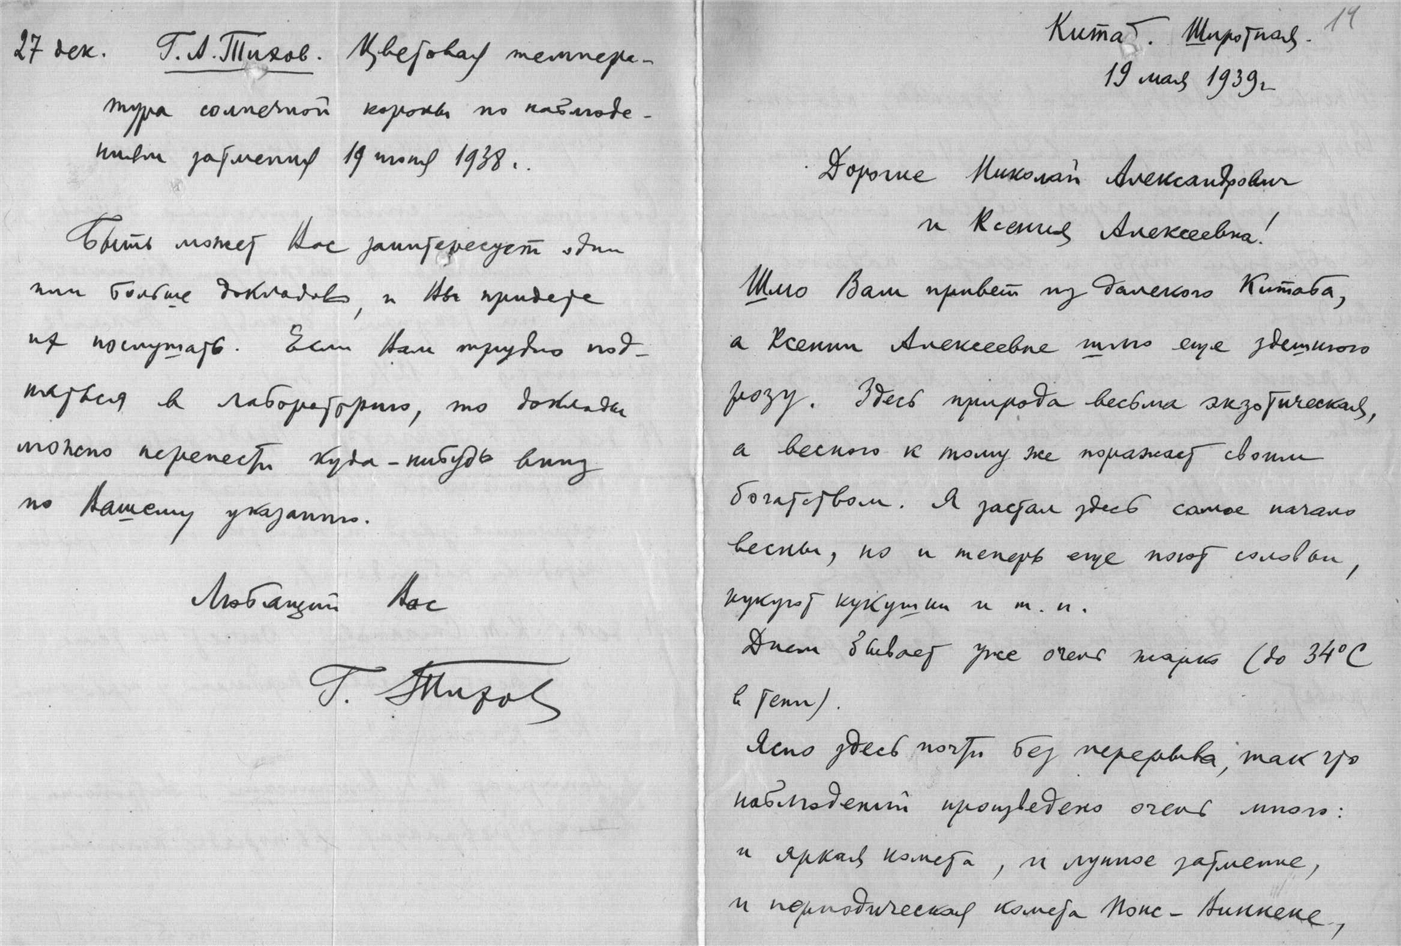 27 дек. Г. А. Тихов. Цветовая темпера-
тура солнечной короны по наблюде-
ниям затмения 19 июня 1938 г.
Быть может Вас заинтересует один
или больше докладов, и Вы придете
их послушать. Если Вам трудно под-
няться в лабораторию, то доклады
можно перенести куда-нибудь вниз
по Вашему указанию.
Любящий Вас
Г. Тихов
14
Китаб. Широтная.
19 мая 1939 г.
Дорогие Николай Александрович
и Ксения Алексеевна!
Шлю Вам привет из далекого Китаба,
а Ксении Алексеевне шлю еще здешнюю
розу. Здесь природа весьма экзотическая,
а весною к тому же поражает своим
богатством. Я застал здесь самое начало
весны, но и теперь еще поют соловьи,
кукуют кукушки и т. п.
Днем бывает уже очень жарко (до 34°C
в тени).
Ясно здесь почти без перерыва, так что
наблюдений произведено очень много:
и яркая комета, и лунное затмение,
и периодическая комета Понс-Виннеке,